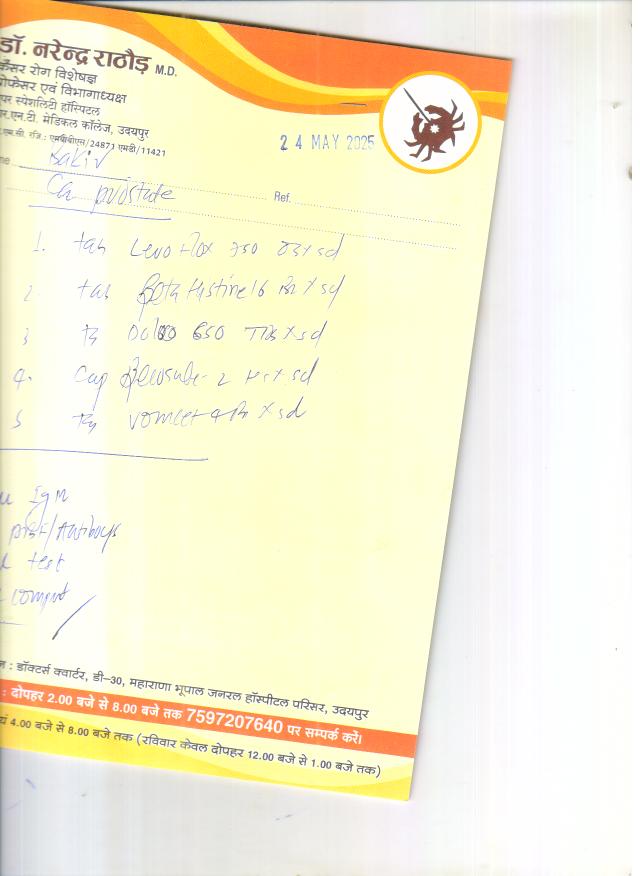 डॉ. नरेन्द्र राठौड़ M.D.
कैंसर रोग विशेषज्ञ
प्रोफेसर एवं विभागाध्यक्ष
स्पेशलिटी हॉस्पिटल
मेडिकल कॉलेज, उदयपुर
रजि.: एमबीबीएस/24871 एमडी/11421
24 MAY 2025
Ca prostate
Ref.
1. tab Levoflox 750 x 5d
2. tab Betahistine 16 x 5d
3 Dolo 650 TDS x 5d
4. Cap 2 x 5d
5 vomeet 4 x 5d
IgM
test
: डॉक्टर्स क्वार्टर, डी-30, महाराणा भूपाल जनरल हॉस्पीटल परिसर, उदयपुर
: दोपहर 2.00 बजे से 8.00 बजे तक 7597207640 पर सम्पर्क करें।
4.00 बजे से 8.00 बजे तक (रविवार केवल दोपहर 12.00 बजे से 1.00 बजे तक)